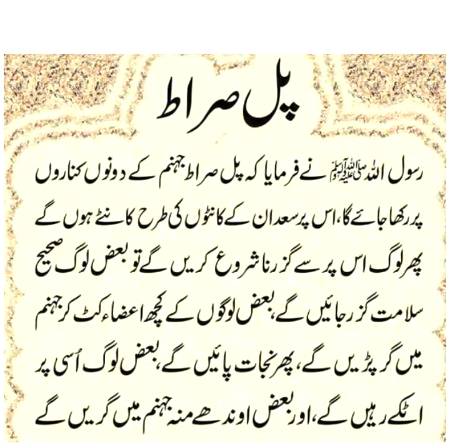 پل صراط
رسول اللہ ﷺ نے فرمایا کہ پل صراط جہنم کے دونوں کناروں
پر رکھا جائے گا، اس پر سعدان کے کانٹوں کی طرح کانٹے ہوں گے
پھر لوگ اس پر سے گزرنا شروع کریں گے تو بعض لوگ صحیح
سلامت گزر جائیں گے، بعض لوگوں کے کچھ اعضاء کٹ کر جہنم
میں گر پڑیں گے، پھر نجات پائیں گے، بعض لوگ اُسی پر
اٹکے رہیں گے، اور بعض اوندھے منہ جہنم میں گریں گے